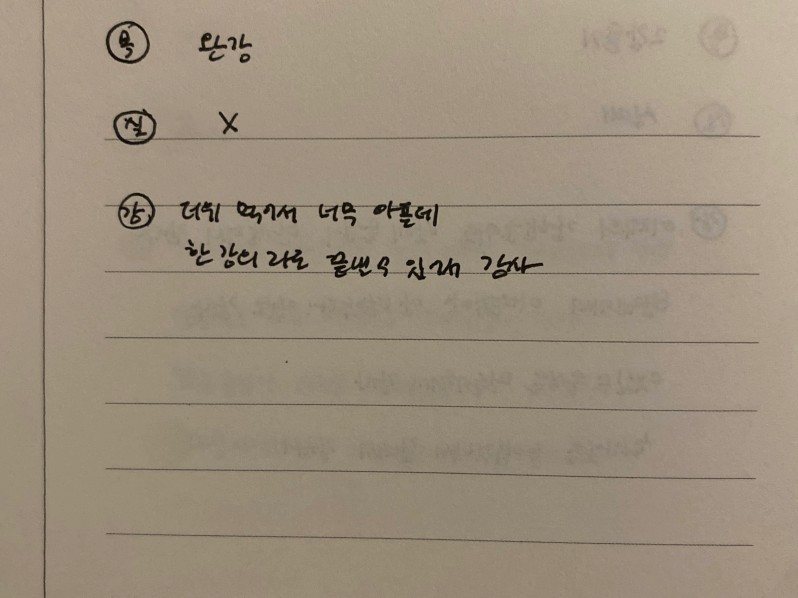 목 완강
실 X
감 더위 먹어서 너무 아픈데
한 강의라도 끝낼 수 있게 감사